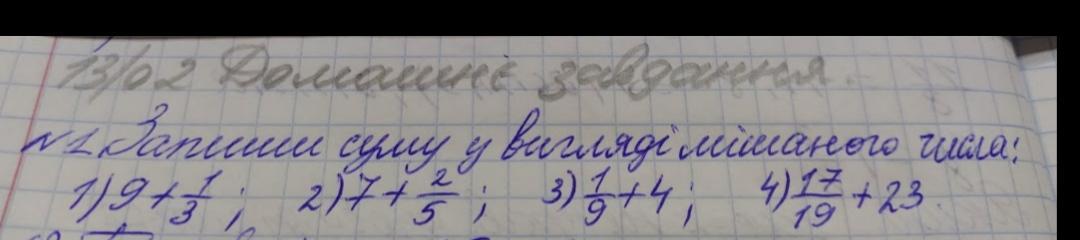 13/02 Домашнє завдання.
№1 Запиши суму у вигляді мішаного числа:
1) 9 + 1/3 ; 2) 7 + 2/5 ; 3) 1/9 + 4 ; 4) 17/19 + 23.